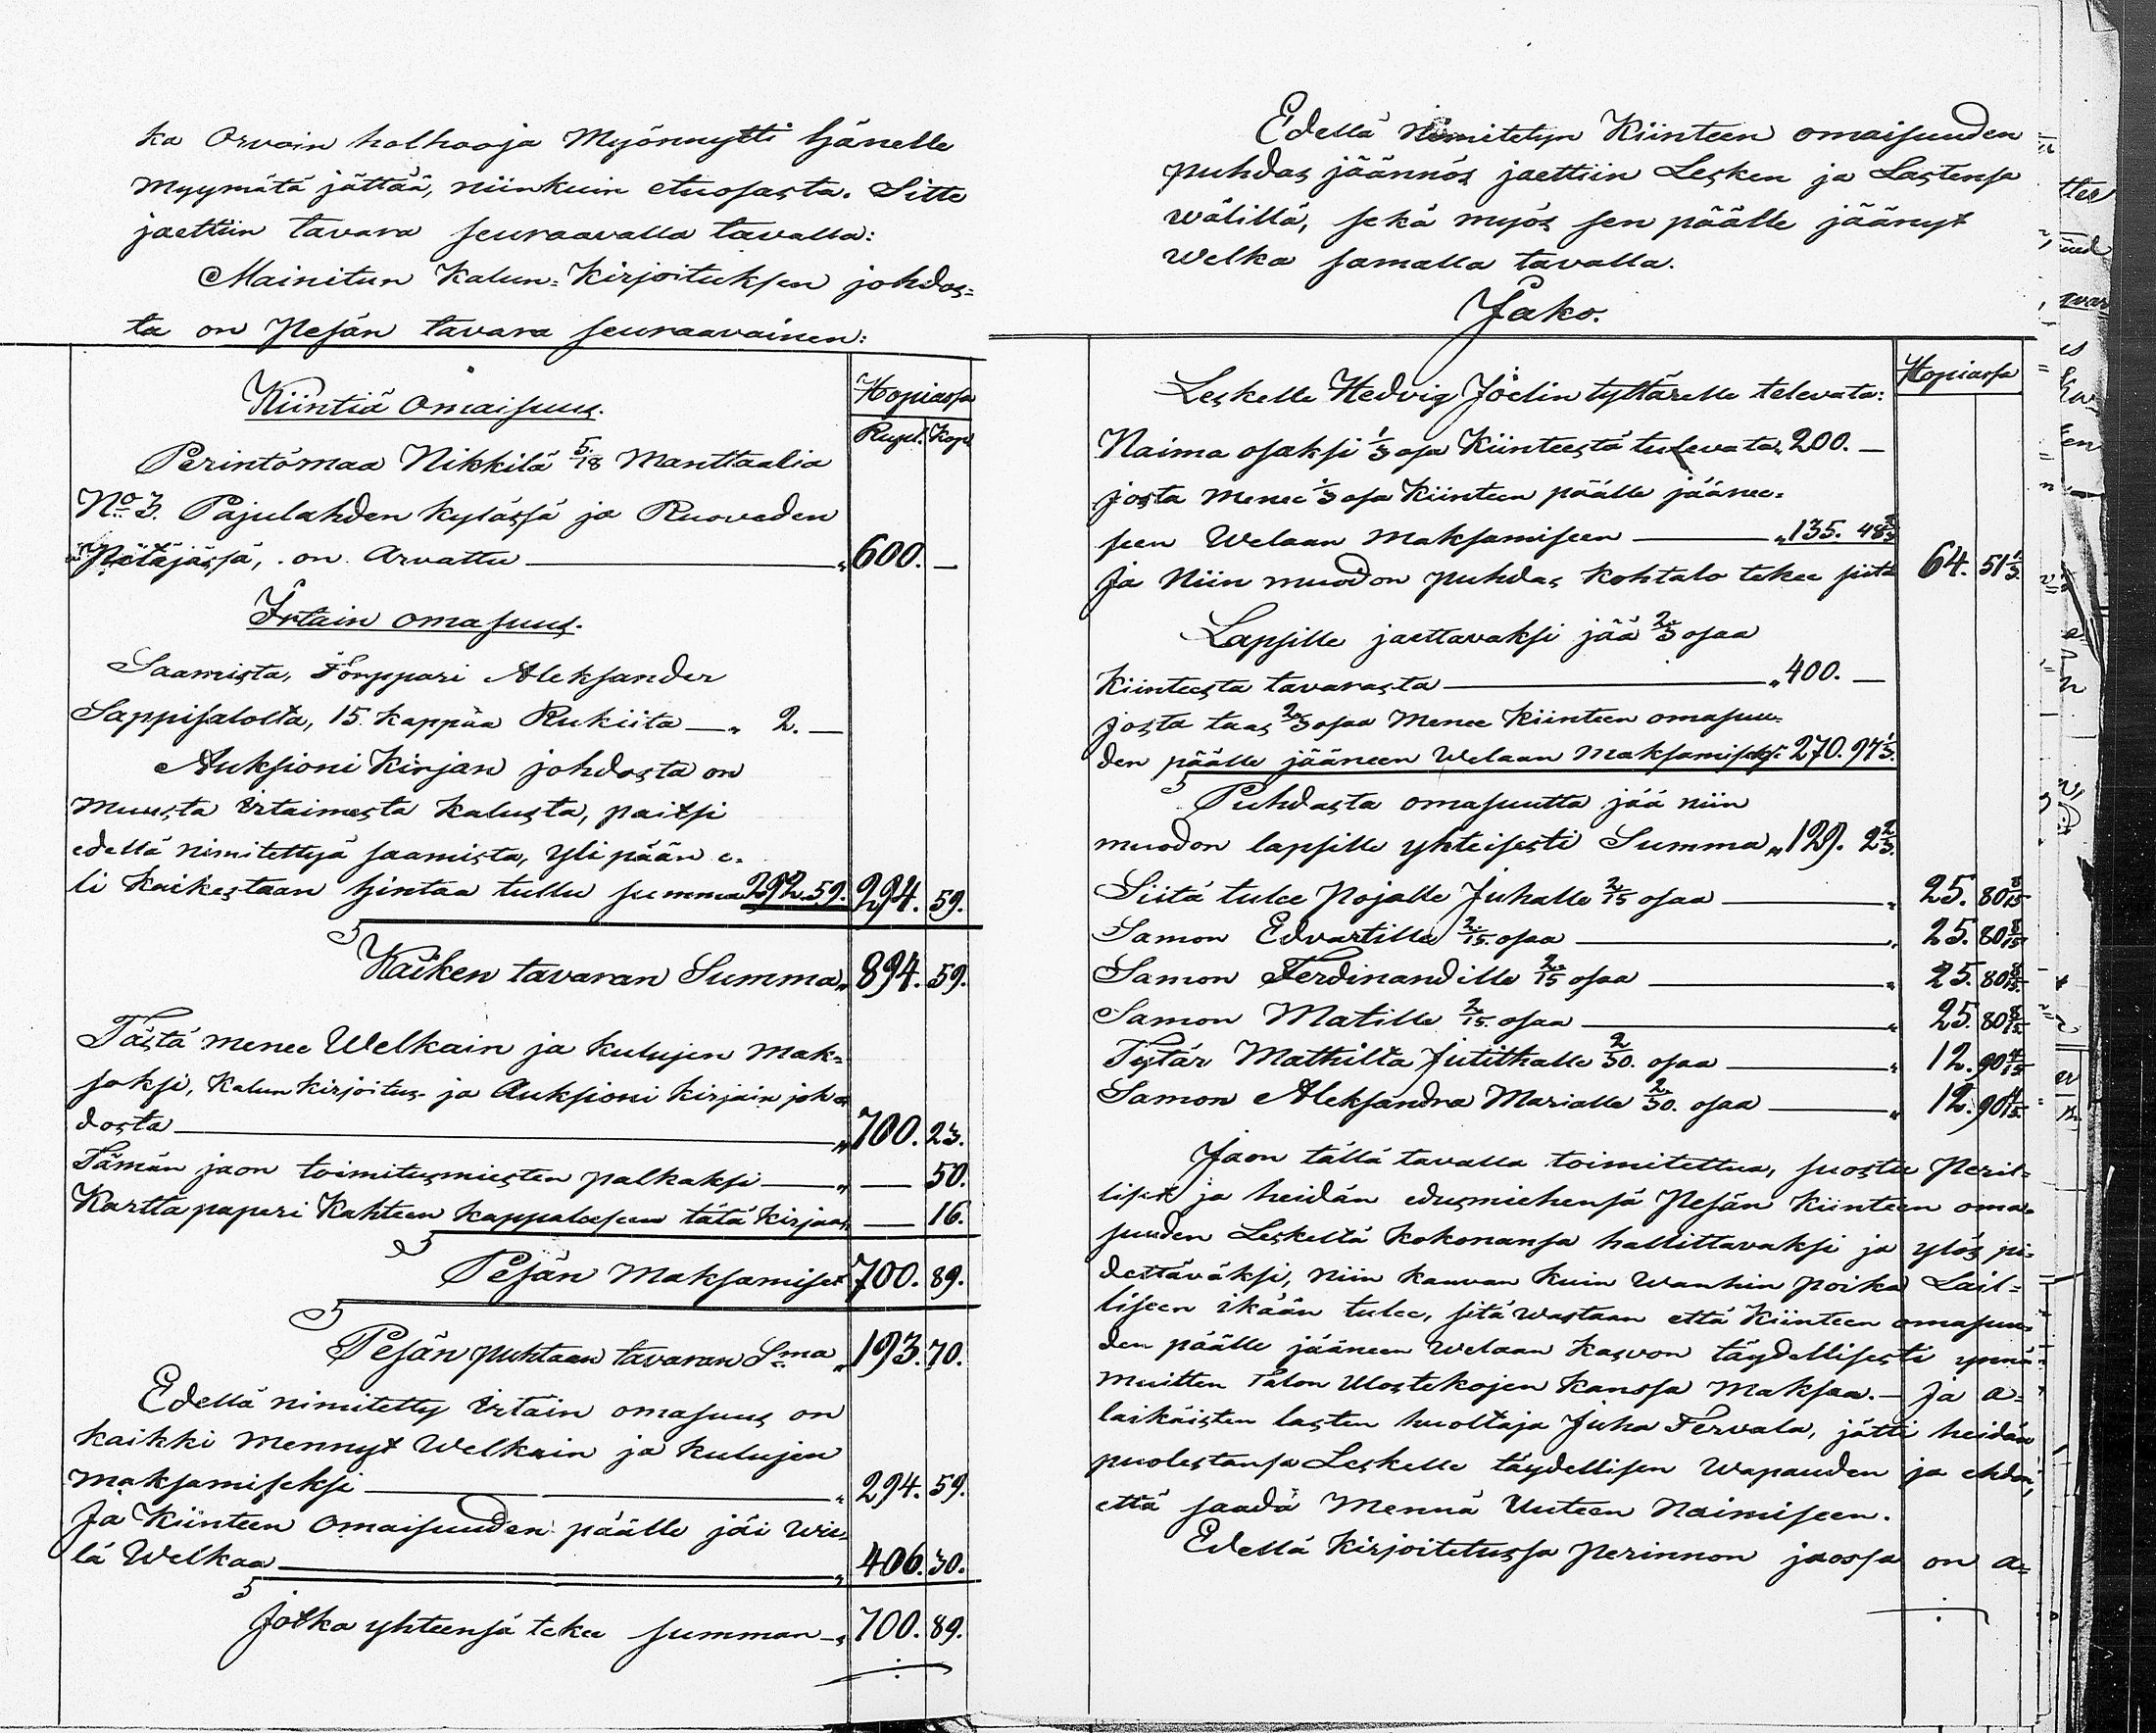 ka Orvoin holhooja Myönnytti hänelle
Myymätä jättää, niinkuin etuosasta. Sitte
jaettiin tavara seuraavalla tavalla:
Mainitun Kalun-Kirjoituksen johdos-
ta on Pesän tavara seuraavainen:
Hopiassa
Kiintiä Omaisuus.
Rupl. Kop.
Perintömaa Nikkilä 5/18 Manttaalia
No 3. Pajulahden kylässä ja Ruoveden
Pitäjässä, on Arvattu " 600. —
Irtain omasuus.
Saamista, Torppari Aleksander
Sappisalolta, 15 kappaa Rukiita — " 2. —
Auksioni Kirjan johdosta on
Muusta Irtaimesta Kalusta, paitsi
edellä nimitettyjä saamista, Yli pään e-
li kaikestaan hintaa tullu summa 292. 59. 294. 59.
Kaiken tavaran Summa " 894. 59.
Tästä menee Welkain ja kulujen Mak-
soksi, Kalun kirjoitus- ja Auksioni kirjain joh-
dosta " 700. 23.
Tämän jaon toimitusmiesten palkaksi — " — 50.
Kartta paperi Kahteen kappaleeseen tätä kirjaa " — 16.
Pesän Maksamiset 700. 89.
Pesän puhtaan tavaran Sma " 193. 70.
Edellä nimitetty Irtain omasuus on
kaikki Mennyt Welkain ja kulujen
Maksamiseksi " 294. 59.
Ja Kiinteen Omaisuuden päälle jäi wie-
lä Welkaa " 406. 30.
Jotka yhteensä tekee summan " 700. 89.
Edellä Nimitetyn Kiinteen omaisuuden
puhdas jäännös jaettiin Lesken ja Lastensa
wälillä, sekä myös sen päälle jäänyt
Welka samalla tavalla.
Jako.
Hopiassa
Leskelle Hedvig Joelin tyttärelle televata:
Naima osaksi 1/3 osa Kiinteestä tulevata " 200. —
josta Menee 1/3 osa Kiinteen päälle jäänee-
seen Welaan Maksamiseen " 135. 48 2/3
Ja Niin muodon puhdas Kohtalo tekee siitä 64. 51 1/3.
Lapsille jaettavaksi jää 2/3 osaa
Kiinteestä tavarasta " 400. —
josta taas 2/3 osaa Menee Kiinteen omasuu-
den päälle jääneen Welaan Maksamiseksi 270. 97 1/3.
Puhdasta omasuutta jää niin
muodon lapsille yhteisesti Summa " 129. 2 2/3.
Siitä tulee Pojalle Juhalle 2/15 osaa " 25. 80 8/15
Samon Edvartille 2/15 osaa " 25. 80 8/15
Samon Ferdinandille 2/15 osaa " 25. 80 8/15
Samon Matille 2/15 osaa " 25. 80 8/15
Tytär Mathilta Jutithalle 2/30 osaa " 12. 90 4/15
Samon Aleksandra Marialle 2/30 osaa " 12. 90 4/15
Jaon tällä tavalla toimitettua, suostu Peril-
liset ja heidän edusmiehensä Pesän Kiinteen oma-
suuden Leskeltä kokonansa hallittavaksi ja ylös pi-
dettäväksi, niin kauvan kuin wanhin poika Lail-
liseen ikään tulee, sitä wastaan että Kiinteen omasuu-
den päälle jääneen Welaan kasvon täydellisesti ynnä
Muitten Talon Ulostekojen kanssa Maksaa. — Ja a-
laikäisten lasten huoltaja Juha Tervala, jätti heidän
puolestansa Leskelle täydellisen Wapauden ja ehdon,
että saada Mennä Uuteen Naimiseen.
Edellä Kirjoitetussa perinnon jaossa on a-